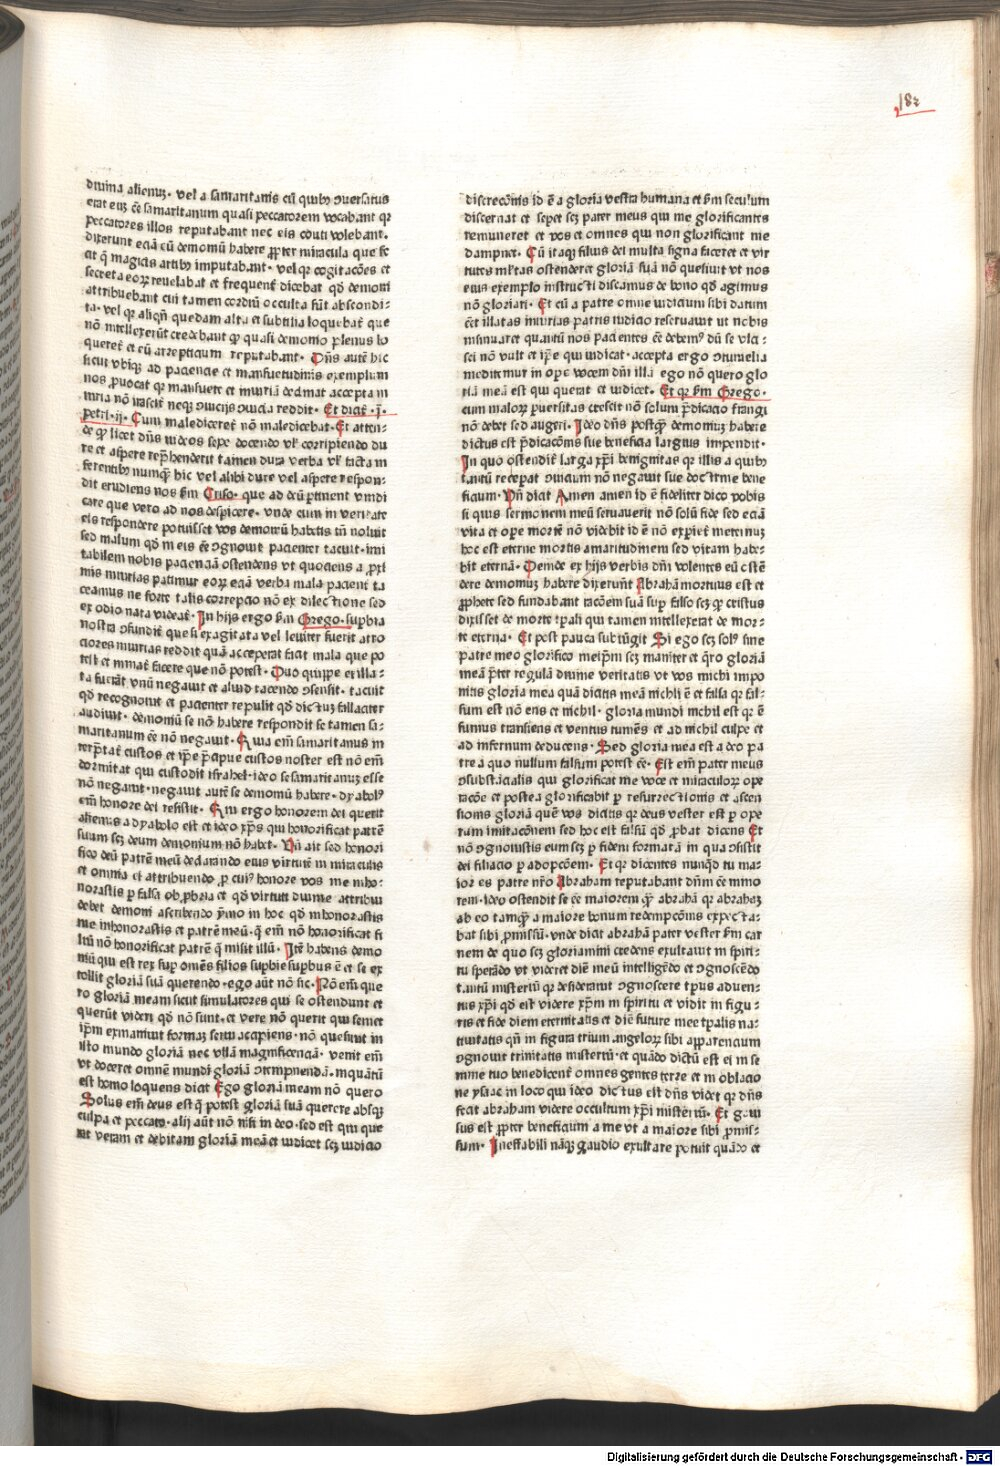 182
diuina alienuz· vel a samaritanis cū quibꝫ ↄuersatus
erat euz eē samaritanum quasi peccatorem vocabant qꝛ
peccatores illos reputabant nec eis couti volebant·
dixerunt eciā eū demoniū habere ꝓpter miracula que fe
cit q̄ magicis artibꝫ imputabant· vel qꝛ cogitacōes et
secreta eoꝝ reuelabat et frequenṫ dicebat qd̄ demoni
attribuebant cui tamen cordiū occulta sūt abscondi⸗
ta· vel qꝛ aliqn̄ quedam alta et subtilia loquebaṫ que
nō intellexerūt credebant ꝙ quasi demonio plenus lo
quereṫ et eū arrepticium reputabant· Dn̄s autē hic
sicut vbiqꝫ ad paciencie et mansuetudinis exemplum
nos ꝓuocat qꝛ mansuete et iniuriā declinat accepta in
iuria nō irasciṫ neqꝫ ↄuicijs ↄuicia reddit· Et diciṫ ·j·
petri·ij· Cum malediceretṫ nō maledicebat· Et atten⸗
de ꝙ licet dn̄s iudeos sepe docendo vł corripiendo du
re et aspere rep̄henderit tamen dura verba vł facta in
ferentibꝫ numqꝫ hic vel alibi dure vel aspere respon⸗
dit erudiens nos s̄m Criso· que ad deū ꝑtinent vindi
care que vero ad nos despicere· vnde cum in veritate
eis respondere potuisset vos demoniū habetis tn̄ noluit
sed malum qd̄ in eis eē ↄgnouit pacienter tacuit· imi
tabilem nobis pacienciā ostendens vt quociens a ꝓxi
mis iniurias patimur eoꝝ eciā verba mala pacienṫ ta
ceamus ne forte talis correpcio nō ex dilectione sed
ex odio nata videaṫ· In hijs ergo s̄m Grego· supbia
nostra ↄfundiṫ que si exagitata vel leuiter fuerit atro
ciores iniurias reddit quā acceperat facit mala que po
test et minaṫ facere que nō potest· Duo quippe ei illa⸗
ta fuerāt vnū negauit et aliud tacendo ↄsensit· tacuit
qd̄ recognouit et pacienter repulit qd̄ dictuꝫ fallaciter
audiuit· demoniū se nō habere respondit se tamen sa⸗
maritanum eē nō negauit· Quia em̄ samaritanus in
terp̄taṫ custos et ip̄e p̄cipue custos noster est nō em̄
dormitat qui custodit israhel· ideo se samaritanuꝫ esse
nō negauit· negauit autē se demoniū habere· dyabolꝰ
em̄ honore dei resistit· Qui ergo honorem dei querit
alienus a dyabolo est et ideo xp̄s qui honorificat patrē
suum scꝫ deum demonium nō habet· Vn̄ ait sed honori
fico deū patrē meū declarando eius virtutē in miraculis
et omnia ei attribuendo ꝓ cuiꝰ honore vos me inho⸗
norastis ꝑ falsa obꝓbria et qd̄ virtuti diuine attribui
debet demoni ascribendo ymmo in hoc qd̄ inhonorastis
me inhonorastis et patrē meū· q̄ em̄ nō honorificat fi
liū nō honorificat patrē q̄ misit illū· Itē habens demo
niū qui est rex suꝑ omēs filios supbie supbus ē et se ex
tollit gloriā suā querendo· ego aūt nō sic· Nō em̄ que
ro gloriā meam sicut simulatores qui se ostendunt et
querūt videri qd̄ nō sunt· et vere nō querit qui semet
ip̄m exinaniuit formaꝫ serui accipiens· nō quesiuit in
isto mundo gloriā nec vllā magnificenciā· venit em̄
vt doceret omnē mundi gloriā ↄtempnendā· inquātū
est homo loquens dicit Ego gloriā meam nō quero
Solus em̄ deus est q̄ potest gloriā suā querere absqꝫ
culpa et peccato· alij aūt nō nisi in deo· sed est qui que
rit veram et debitam gloriā meā et iudicet scꝫ iudicio
discrecōnis id ē a gloria vestra humana et s̄m seculum
discernat et sepet scꝫ pater meus qui me glorificantes
remuneret et vos et omnes qui non glorificant me
dampnet· Cū itaqꝫ filius dei multa signa faceret et vir
tutes ml̄tas ostenderet gloriā suā nō quesiuit vt nos
eius exemplo instructi discamus de bono qd̄ agimus
nō gloriari· Et cū a patre omne iudicium sibi datum
eēt illatas iniurias patris iudicio reseruauit ut nobis
insinuaret quantū nos pacientes eē debemꝰ dū se vlci⸗
sci nō vult et ip̄e qui iudicat· accepta ergo ↄtumelia
meditemur in ope vocem dn̄i illā ego nō quero glo
riā meā est qui querat et iudicet· Et qꝛ s̄m Grego·
cum maloꝝ ꝑuersitas crescit nō solum p̄dicacio frangi
nō debet sed augeri· Ideo dn̄s postqꝫ demoniuꝫ habere
dictus est p̄dicacōnis sue beneficia largius impendit·
In quo ostendiṫ larga xp̄i benignitas qꝛ illis a quibꝫ
tantū receperat ↄuicium nō negauit sue doctrine bene
ficium· Vn̄ dicit Amen amen id ē fideliter dico vobis
si quis sermonem meū seruauerit nō solū fide sed eciā
vita et ope mortē nō videbit id ē nō experieṫ meternuꝫ
hoc est eterne mortis amaritudinem sed vitam habe⸗
bit eternā· Deinde ex hijs verbis dn̄i volentes eū ostē
dere demoniuꝫ habere dixerunṫ Abrahā mortuus est et
ꝓphete sed fundabant racōem suā sup falso scꝫ ꝙ cristus
dixisset de morte tp̄ali qui tamen intellexerat de mor⸗
te eterna· Et post pauca subiūgit Si ego scꝫ solꝰ sine
patre meo glorifico meip̄m scꝫ inaniter et q̄ro gloriā
meā p̄ter regulā diuine veritatis vt vos michi impo
nitis gloria mea quā dicitis meā nichil ē et falsa qꝛ fal⸗
sum est nō ens et nichil· gloria mundi nichil est qꝛ ē
fumus transiens et ventus tumēs et ad nichil culpe et
ad infernum deducens· Sed gloria mea est a deo pa
tre a quo nullum falsum potest eē· Est em̄ pater meus
ↄsubstācialis qui glorificat me voce et miraculoꝝ ope
racōe et postea glorificabit ꝑ resurrectionis et ascen
sionis gloriā quē vos dicitis qꝛ deus vester est ꝑ ope
rum imitacōnem sed hoc est falsū qd̄ ꝓbat dicens Et
nō ↄgnouistis eum scꝫ ꝑ fidem formatā in qua ↄsistit
dei filiacio ꝑ adopcōem· Et qꝛ dicentes nunqd̄ tu ma⸗
ior es patre nr̄o Abraham reputabant dn̄m eē mino
rem· ideo ostendit se eē maiorem qꝫ abrahā qꝛ abrahaꝫ
ab eo tamqꝫ a maiore bonum redempcōnis expecta⸗
bat sibi ꝓmissū· vnde dicit abrahā pater vester s̄m car
nem de quo scꝫ gloriamini credens exultauit in spiri⸗
tu sperādo vt videret diē meū intelligēdo et ↄgnoscēdo
tantū misteriū qꝛ desiderauit ↄgnoscere tp̄us aduen⸗
tus xp̄i qd̄ est videre xp̄m in spiritu et vidit in figu⸗
ris et fide diem eternitatis et diē future mee tp̄alis na⸗
tiuitatis qn̄ in figura trium angeloꝝ sibi apparencium
ↄgnouit trinitatis misteriū· et quādo dictū est ei in se
mine tuo benedicenṫ omnes gentes terre et in oblacio
ne ysaac in loco qui ideo dictus est dn̄s videt qꝛ dn̄s
fecit abraham videre occultum xp̄i misteriū· Et gaui
sus est ꝓpter beneficium a me vt a maiore sibi ꝓmis⸗
sum· Ineffabili nāqꝫ gaudio exultare potuit quādo et
Digitalisierung gefördert durch die Deutsche Forschungsgemeinschaft · DFG